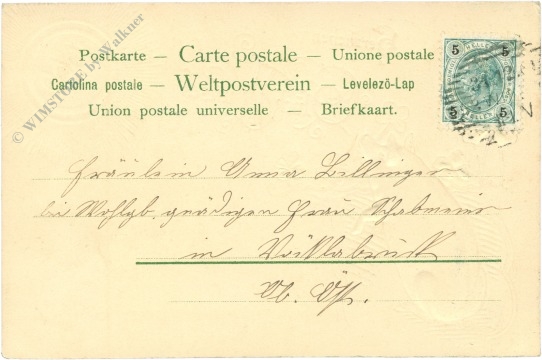 © WIMSTUBE by Walkner
Postkarte — Carte postale — Unione postale
Cartolina postale — Weltpostverein — Levelező-Lap
Union postale universelle — Briefkaart.
5 HELLER 5
5 HELLER 5
Fräulein Anna Billinger
bei Wohlgb. gnädigen Frau
in Vöcklabruck
Ob. Öst.